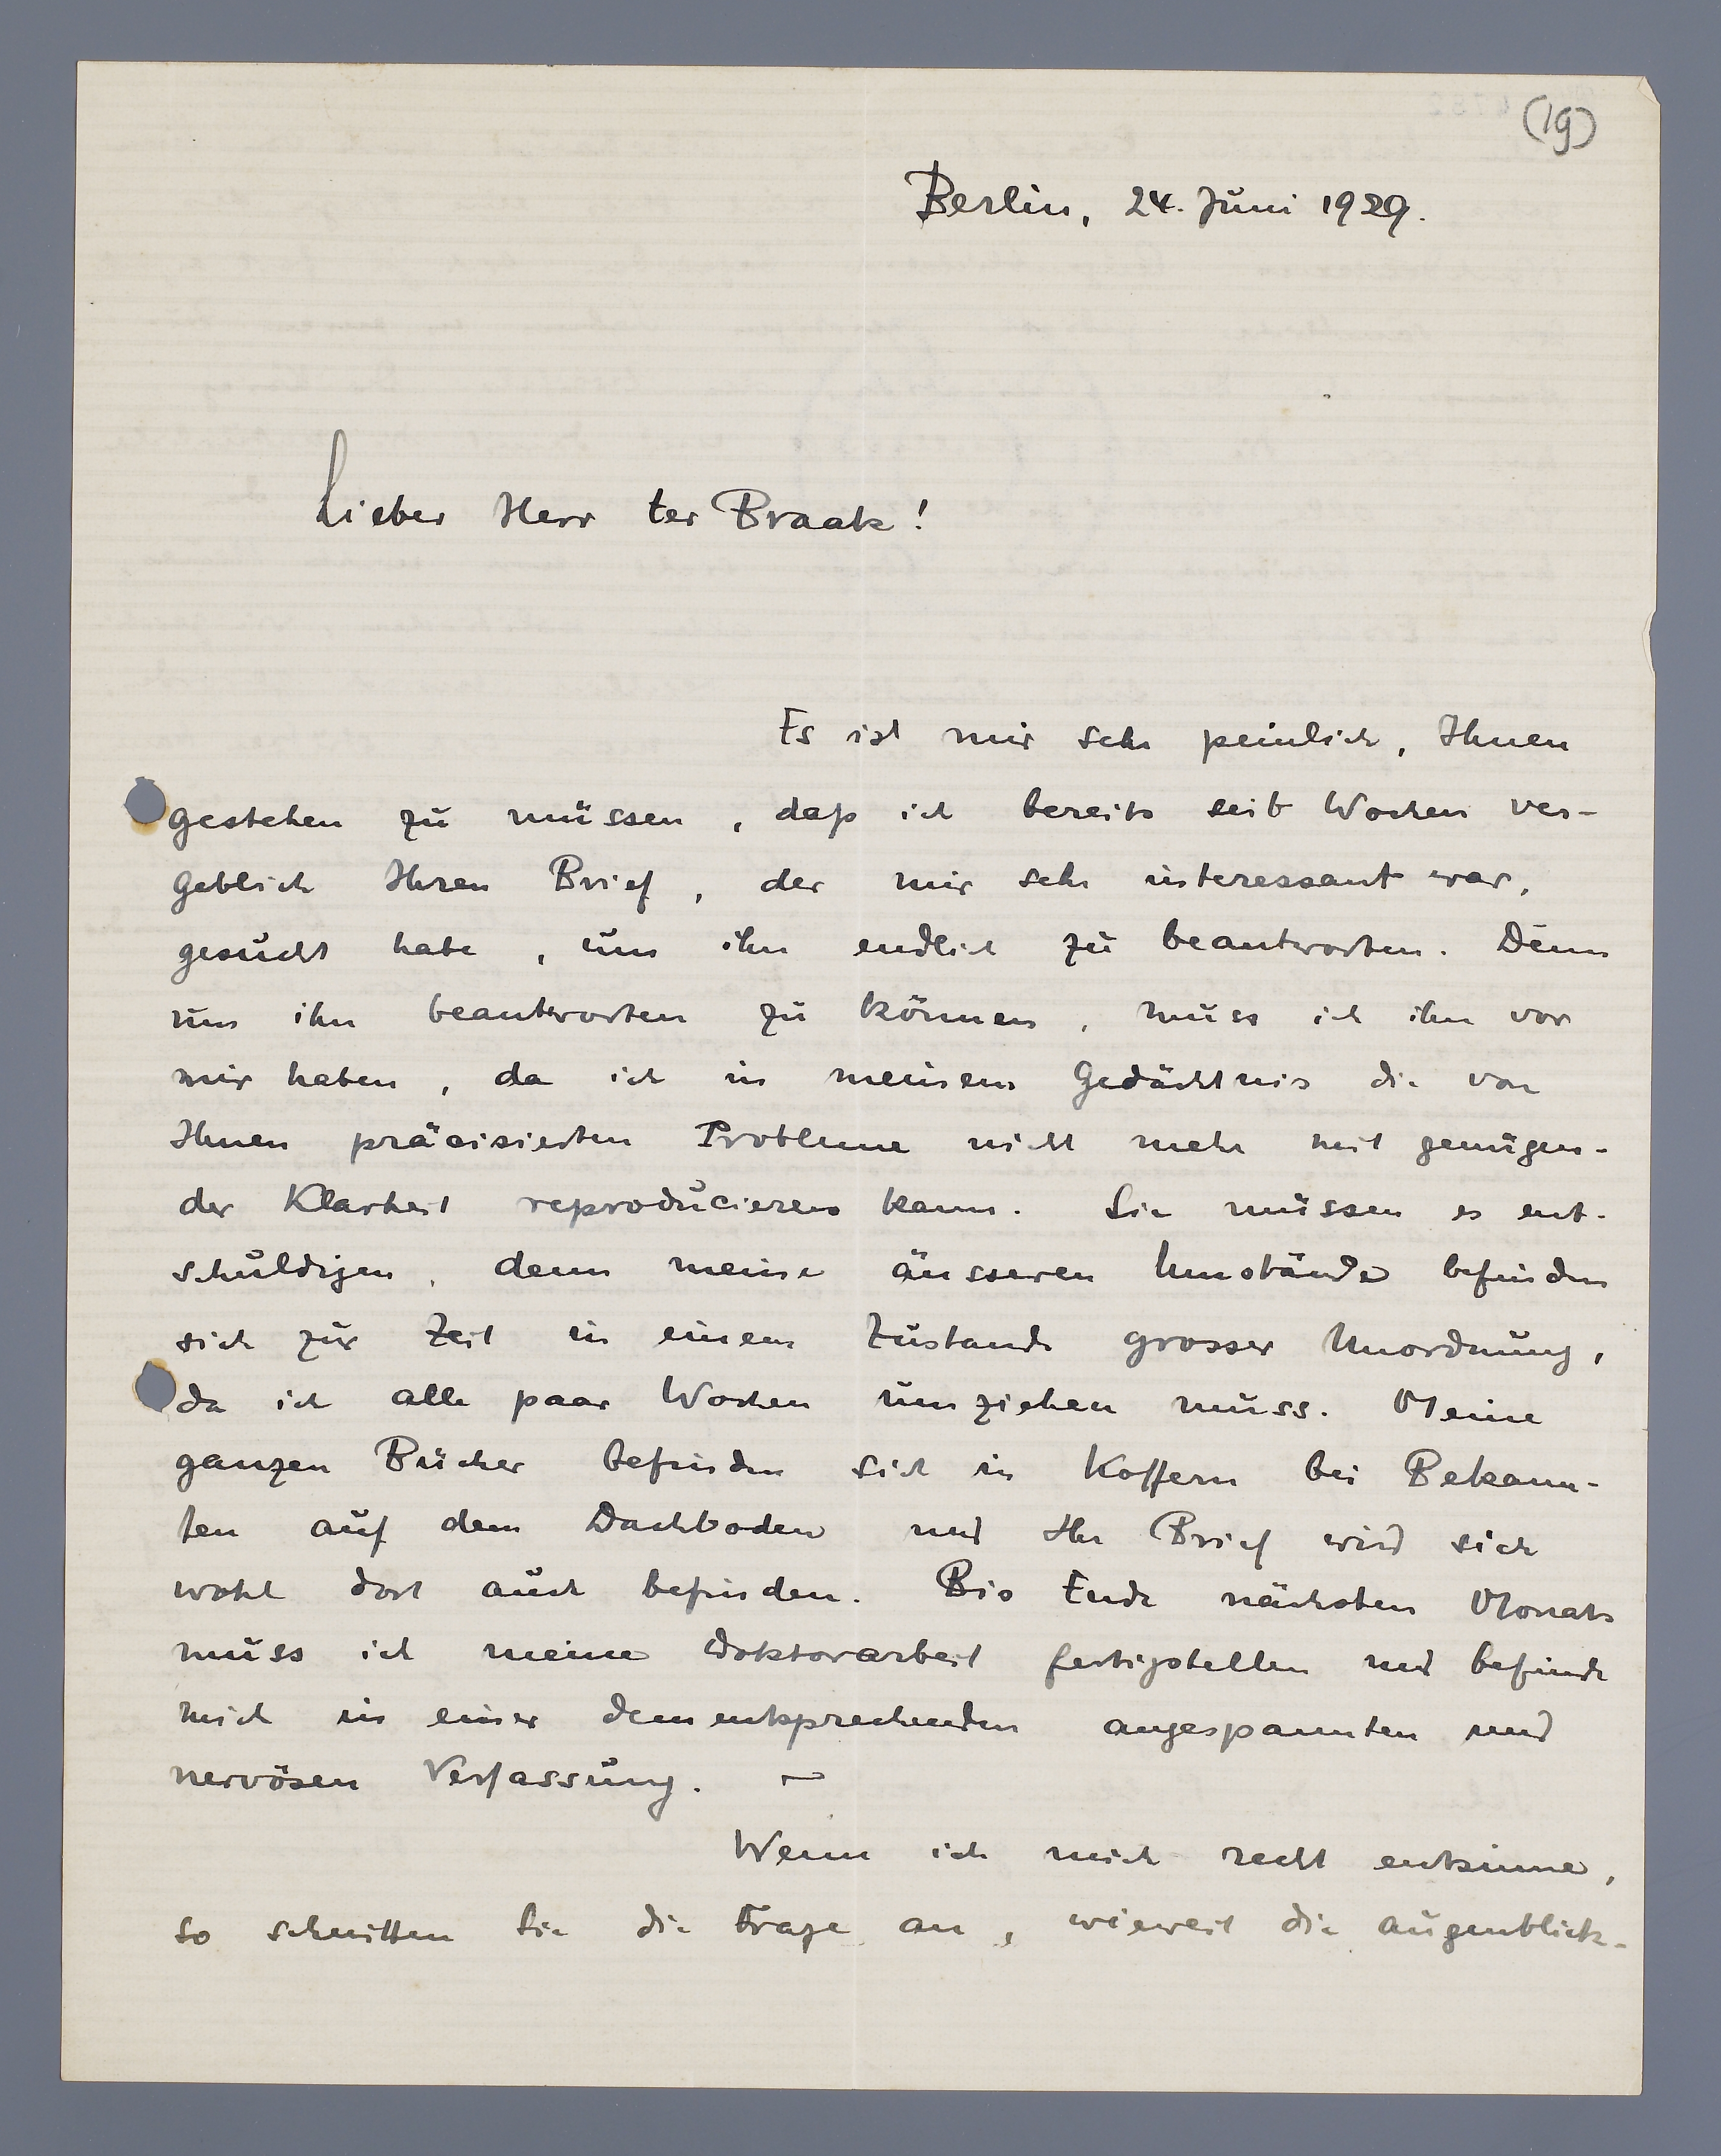 (19)
Berlin, 24. Juni 1929.
Lieber Herr ter Braak!
Es ist mir sehr peinlich, Ihnen
gestehen zu müssen, daß ich bereits seit Wochen ver-
geblich Ihren Brief, der mir sehr interessant war,
gesucht habe, um ihn endlich zu beantworten. Denn
um ihn beantworten zu können, muss ich ihn vor
mir haben, da ich in meinem Gedächtnis die von
Ihnen präcisierten Probleme nicht mehr mit genügen-
der Klarheit reproducieren kann. Sie müssen es ent-
schuldigen, denn meine äusseren Umstände befinden
sich zur Zeit in einem Zustande grosser Unordnung,
da ich alle paar Wochen umziehen muss. Meine
ganzen Bücher befinden sich in Koffern bei Bekann-
ten auf dem Dachboden und Ihr Brief wird sich
wohl dort auch befinden. Bis Ende nächsten Monats
muss ich meine Doktorarbeit fertigstellen und befinde
mich in einer dementsprechenden angespannten und
nervösen Verfassung. —
Wenn ich mich recht entsinne,
so schnitten Sie die Frage an, wieweit die augenblick-